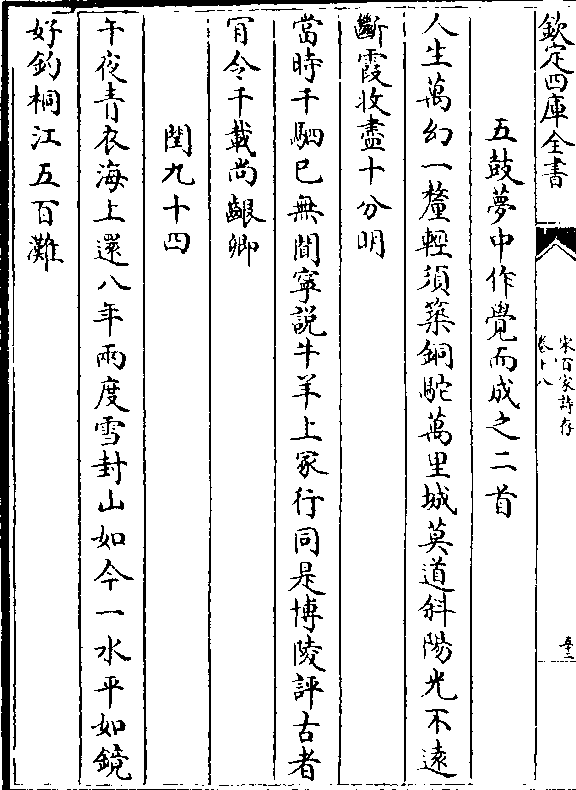 欽定四庫全書
宋百家詩存
卷十八
五鼓夢中作覺而成之二首
人生萬幻一釐輕須築銅駝萬里城莫道斜陽光不遠
斷霞收盡十分明
當時千駟已無聞寧説牛羊上冢行同是博陵評古者
肎令千載尚齦卿
閏九十四
午夜青衣海上還八年兩度雪封山如今一水平如鏡
好釣桐江五百灘